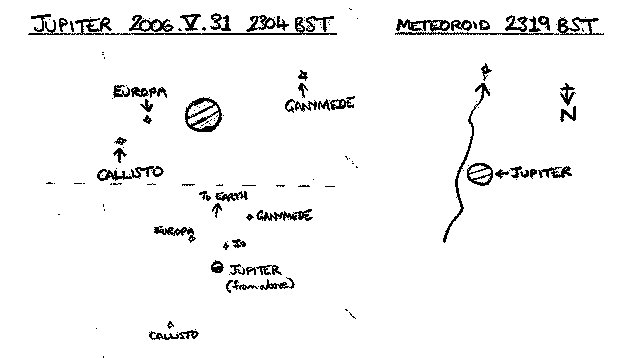 JUPITER 2006.V.31 2304 BST
EUROPA
GANYMEDE
CALLISTO
TO EARTH
GANYMEDE
EUROPA
IO
JUPITER
(from above)
CALLISTO
METEOROID 2319 BST
N
JUPITER